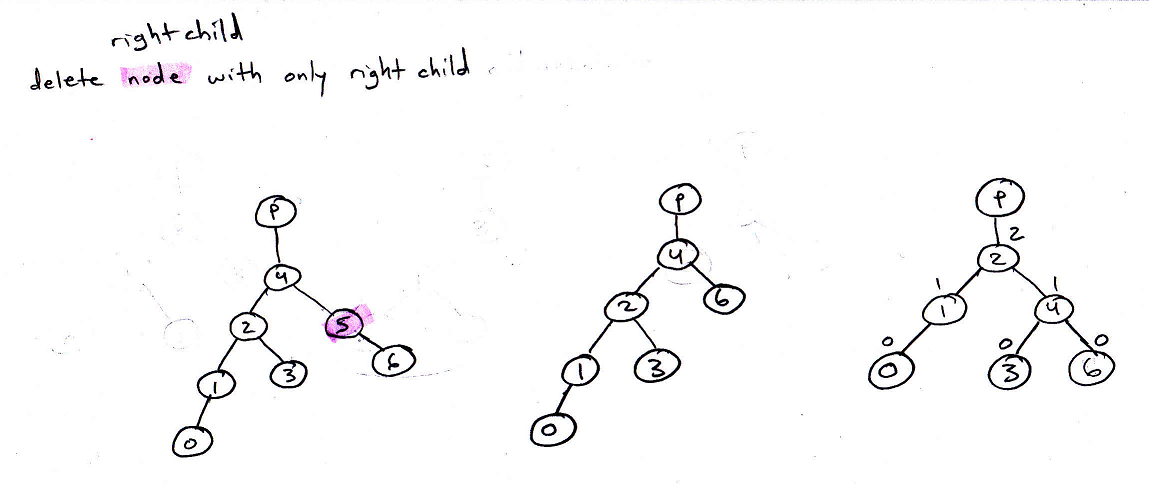 right child
delete node with only right child
P
4
2 5
1 3 6
0
P
4
2 6
1 3
0
P
2
2
1 1
1 4
0 0 0
0 3 6